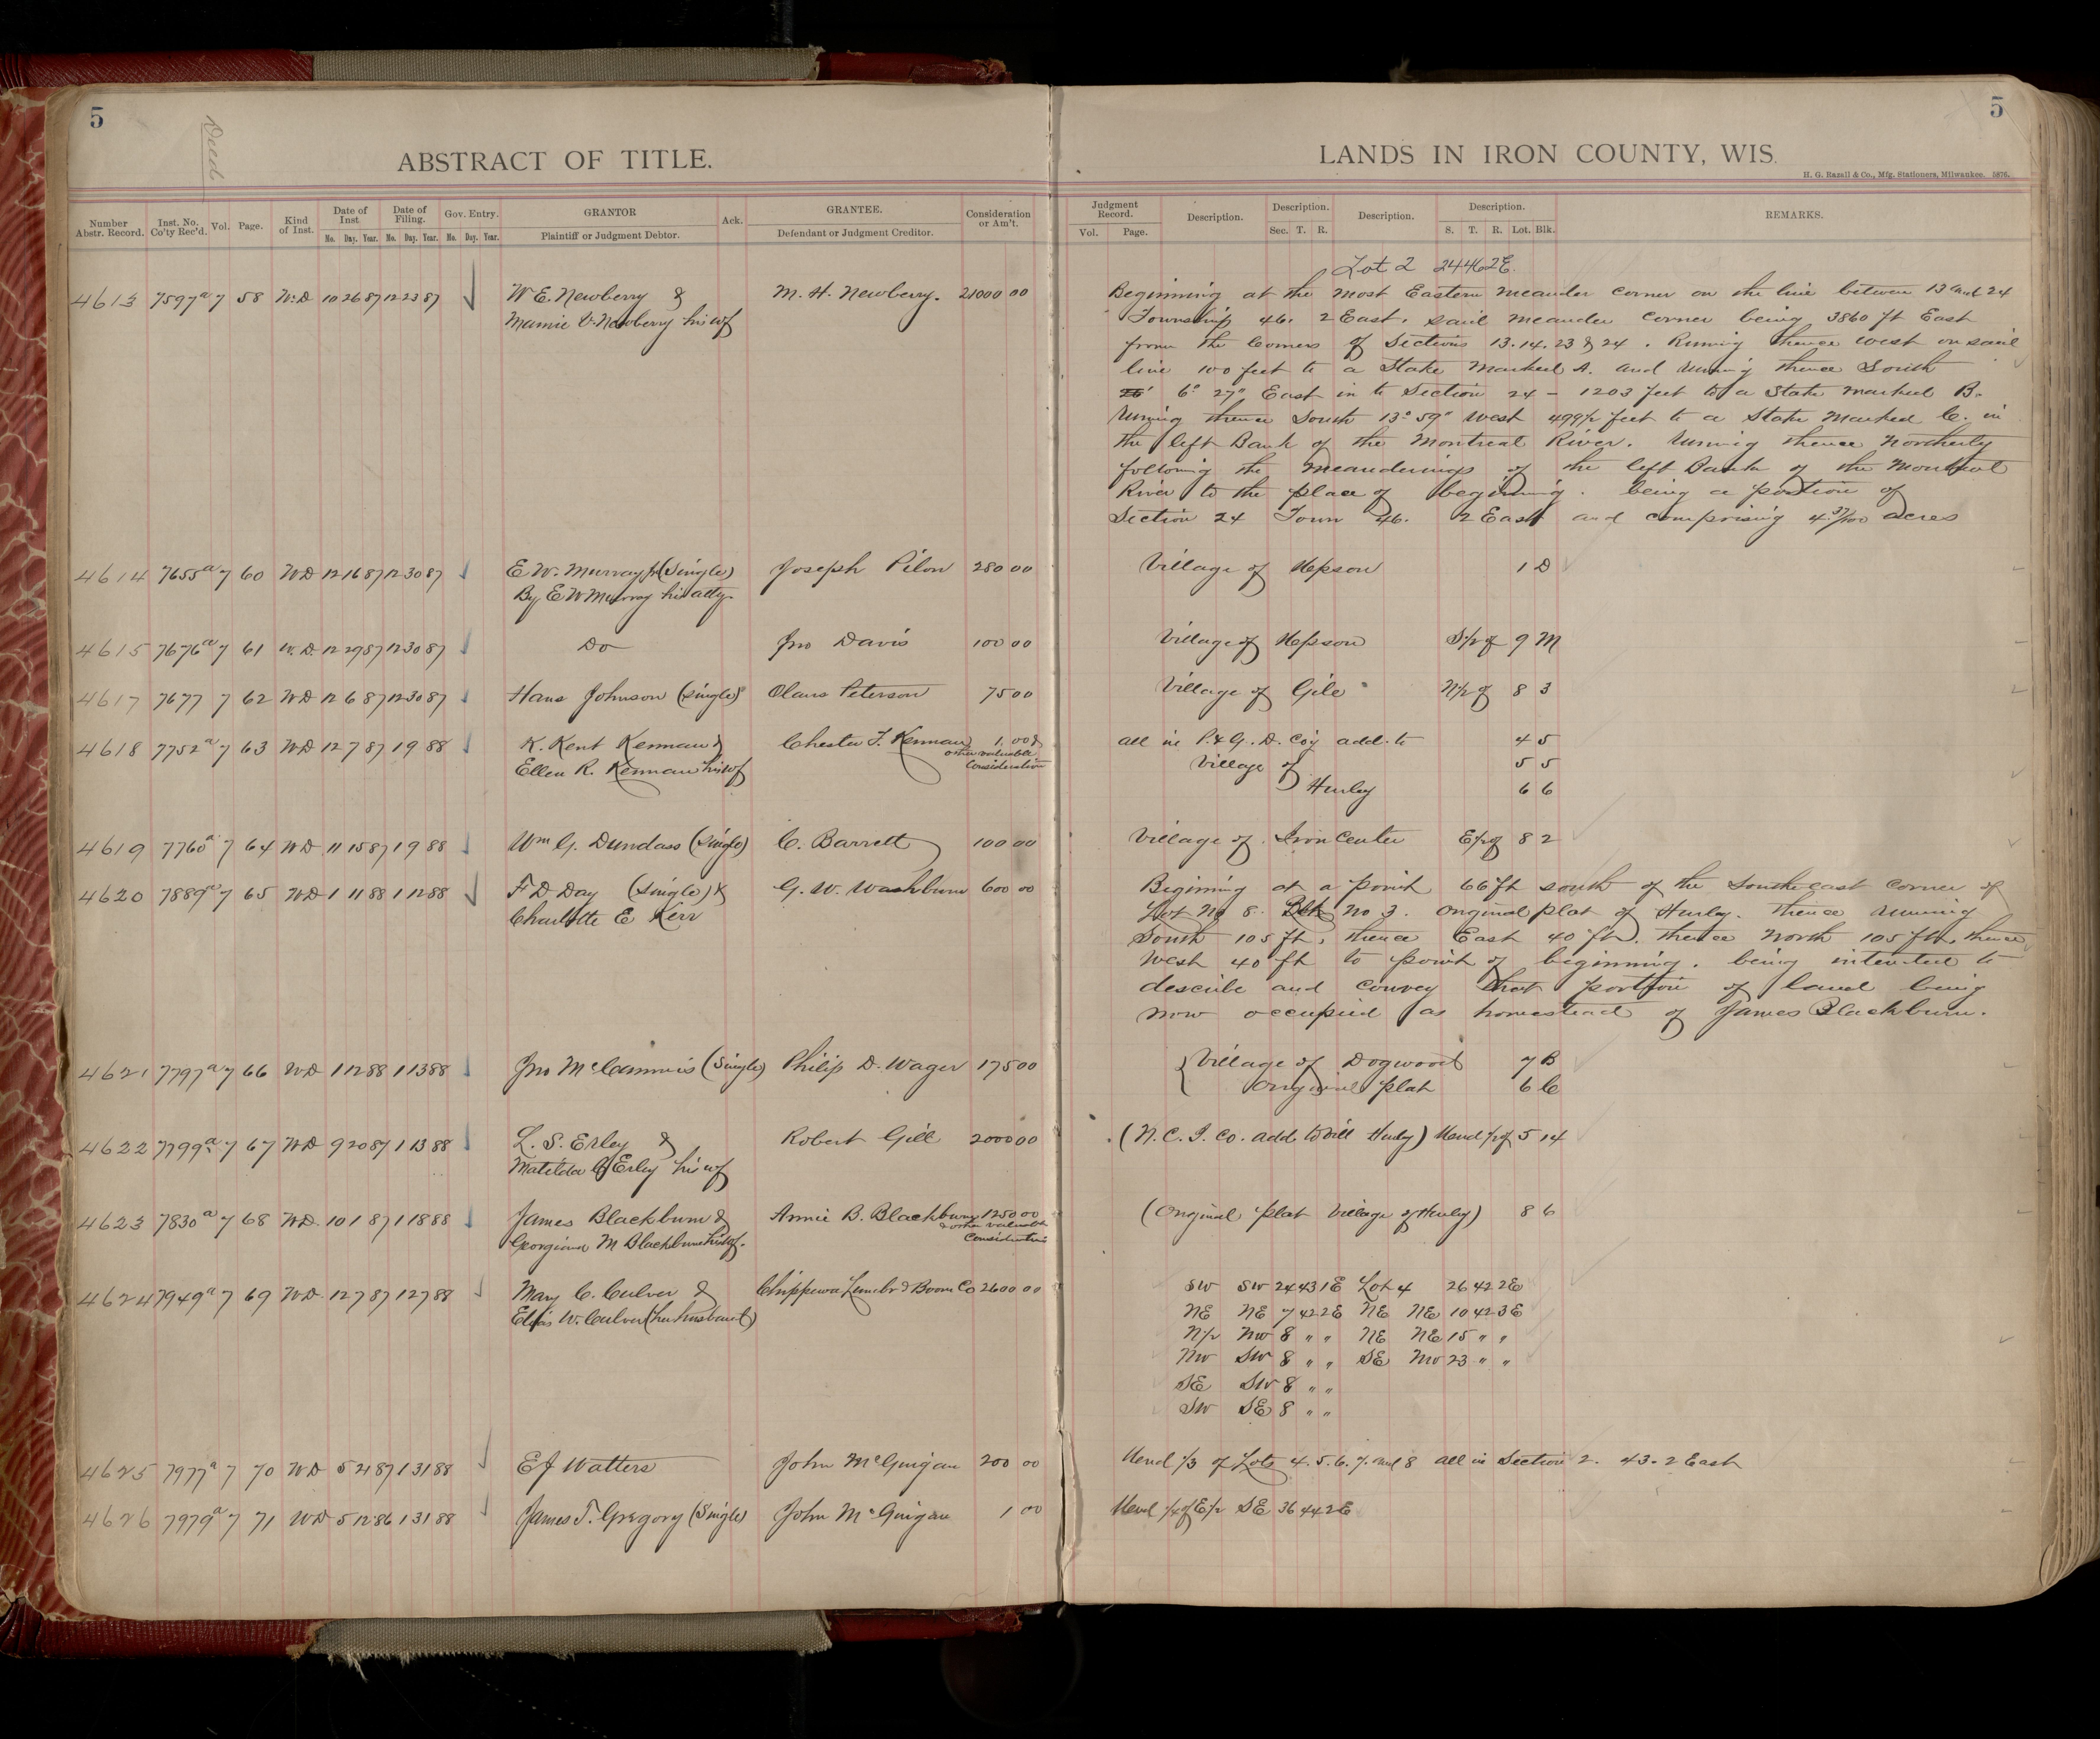 5
Deed
ABSTRACT OF TITLE.
Number Abstr. Record. Inst. No. Co'ty Rec'd. Vol. Page. Kind of Inst. Date of Inst. Mo. Day. Year. Date of Filing. Mo. Day. Year. Gov. Entry. Mo. Day. Year. GRANTOR Plaintiff or Judgment Debtor. Ack. GRANTEE. Defendant or Judgment Creditor. Consideration or Am't.
4613 7597a 7 58 W.D 10 26 87 12 23 87 W E. Newberry & M. H. Newberry. 21000 00
Mamie V. Newberry his wf
4614 7655a 7 60 WD 12 16 87 12 30 87 E W. Murray Jr (Single) Joseph Pilon 280 00
By E W Murray his atty.
4615 7676a 7 61 W.D. 12 29 87 12 30 87 Do Jno Davis 100 00
4617 7677 7 62 WD 12 6 87 12 30 87 Hans Johnson (single) Olaus Peterson 75 00
4618 7752a 7 63 WD 12 7 87 1 9 88 K. Kent Kennan & Chester T. Kennan 1.00 &
other valuable
Ellen R. Kennan his wf consideration
4619 7760a 7 64 WD 11 15 87 1 9 88 Wm G. Dundass (single) C. Barrett 100 00
4620 7889a 7 65 WD 1 11 88 1 12 88 F D Day (single) & G. W. Washburn 600 00
Charlotte E Kerr
4621 7797a 7 66 WD 1 12 88 1 13 88 Jno McCammis (Single) Philip D. Wager 175 00
4622 7799a 7 67 WD 9 20 87 1 13 88 L. S. Erley & Robert Gill 2000 00
Matilda Erley his wf
4623 7830a 7 68 WD. 10 1 87 1 18 88 James Blackburn & Annie B. Blackburn 1250 00
& other valuable
Georgiana M Blackburn his wf. Consideration
4624 7949a 7 69 WD. 12 7 87 1 27 88 Mary C. Culver & Chippewa Lumbr & Boom Co 2600 00
Elias W. Culver (her husband)
4625 7977a 7 70 WD 5 21 87 1 31 88 E J Watters John McGuigan 200 00
4626 7979a 7 71 WD 5 12 86 1 31 88 James T. Gregory (Single) John McGuigan 1 00
5
LANDS IN IRON COUNTY, WIS.
H. G. Razall & Co., Mfg. Stationers, Milwaukee. 5876.
Judgment Record. Vol. Page. Description. Description. Sec. T. R. Description. Description. S. T. R. Lot. Blk. REMARKS.
Lot 2 24 46 2E.
Beginning at the most Eastern meander corner on the line between 13 and 24
Township 46. 2 East. said meander corner being 3860 ft East
from the Corners of Sections 13.14.23 & 24. Runing thence West on said
line 100 feet to a Stake Marked A. and runing thence South
6° 27" East in to Section 24 - 1203 feet to a Stake marked B.
runing thence South 13° 59" West 499 1/2 feet to a Stake Marked C. in
the left Bank of the Montreal River. runing thence Northerly
following the meanderings of the left Bank of the Montreal
River to the place of beginning. being a portion of
Section 24 Town 46. 2 East and comprising 4. 37/100 acres
Village of Hepson 1 D
Village of Hepson S 1/2 of 9 M
Village of Gile N 1/2 of 8 3
all in P. & G. D. Coy add. to 4 5
Village of 5 5
Hurley 6 6
Village of Iron Center E 1/2 of 8 2
Biginning at a point 66 ft south of the South-east corner of
Lot No 8. Blk No 3. original plat of Hurley. thence runing
South 105 ft, thence East 40 ft. thence North 105 ft, thence
West 40 ft to point of beginning. being intended to
describe and convey that portion of land being
now occupied as homestead of James Blackburn.
{Village of Dogwood 7 B
Original plat 6 C
(N. C. I. Co. add. to Vill Hurly) Und 1/2 of 5 14
(Original plat Village of Hurly) 8 6
SW SW 24 43 1E Lot 4 26 42 2E
NE NE 7 42 2E NE NE 10 42 3E
N 1/2 NW 8 " " NE NE 15 " "
NW SW 8 " " SE NW 23 " "
SE SW 8 " "
SW SE 8 " "
Und 1/3 of Lots 4. 5. 6. 7. and 8 all in Section 2. 43. 2 East
Und of E 1/2 SE 36 44 2E